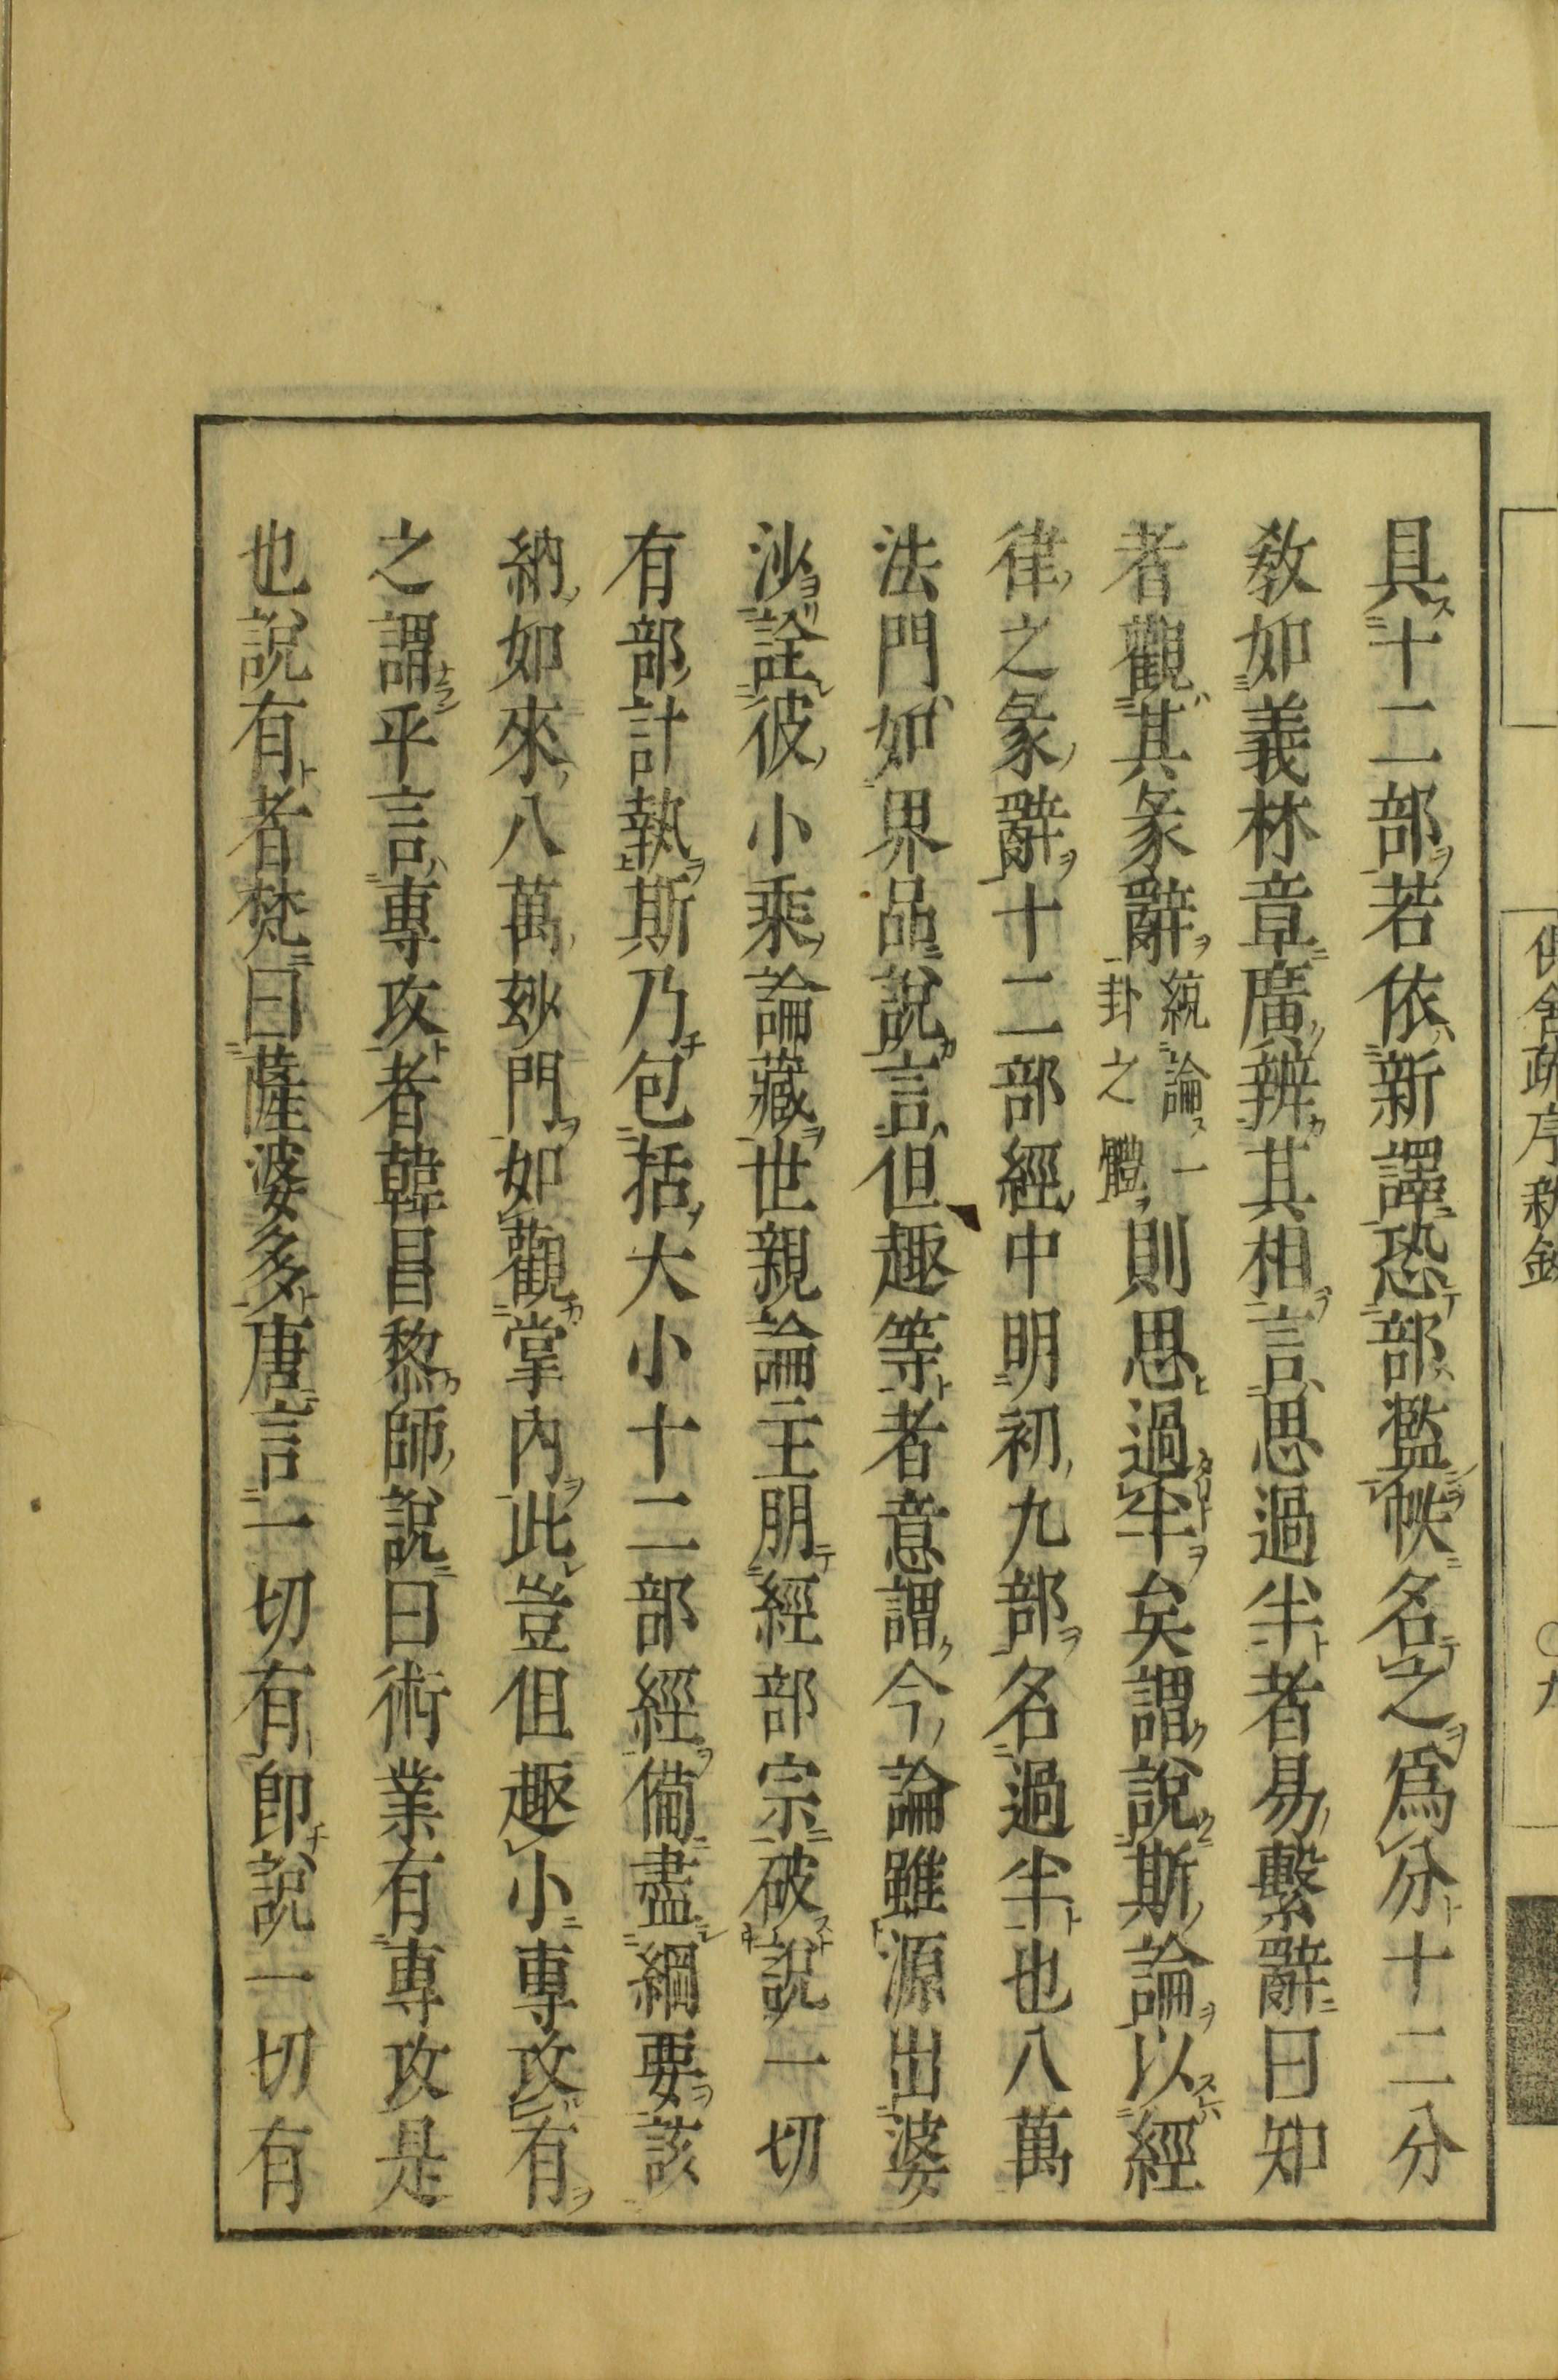 具十二部若依新譯恐部濫帙名之爲分十二分
敎如義林章廣辨其相言思過半者易繫辭曰知
者觀其彖辭統論一卦之體則思過半矣謂說斯論以經
律之彖辭十二部經中明初九部名過半也八萬
法門如界品說言但趣等者意謂今論雖源出婆
沙詮彼小乘論藏世親論主朋經部宗破說一切
有部計執斯乃包括大小十二部經備盡綱要該
納如來八萬玅門如觀掌內此豈但趣小專攻有
之謂乎言專攻者韓昌黎師說曰術業有專攻是
也說有者梵曰薩婆多唐言一切有卽說一切有